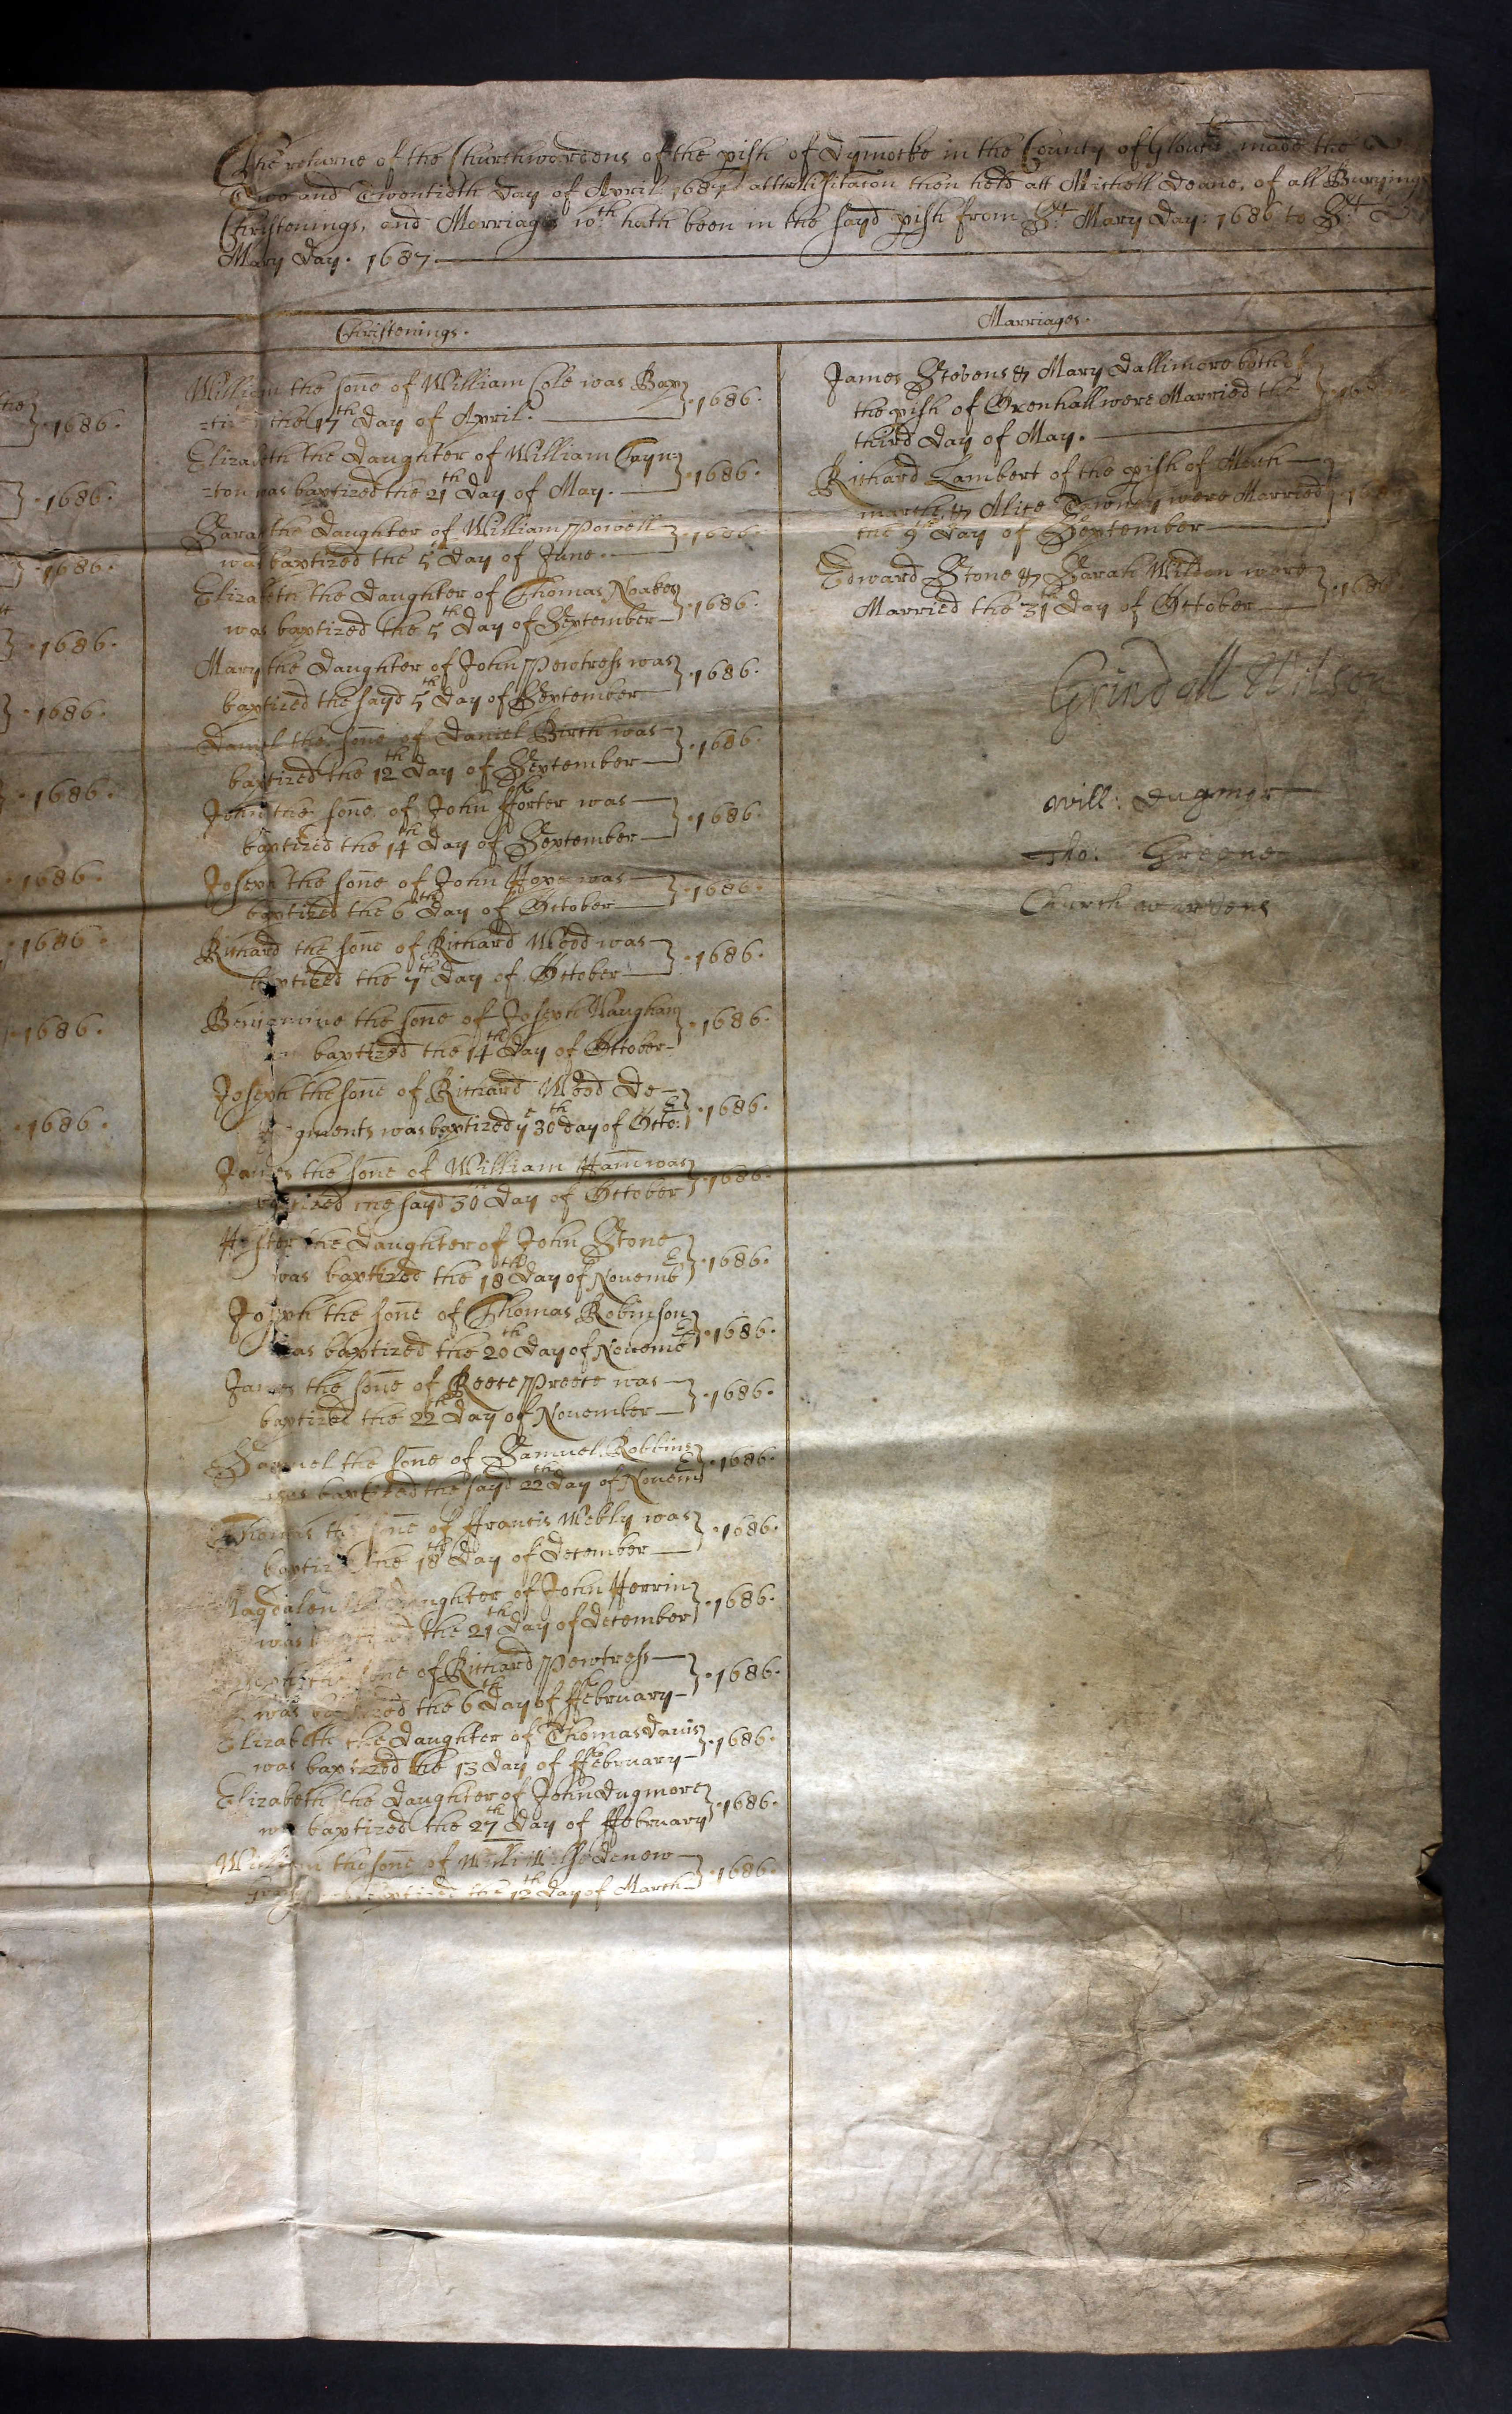 The returne of the Churchwardens of the pish of Dymocke in the County of Gloucr. made the
Two and Twentieth Day of April 1687 att the Visitacon then held att Michell Deane, of all Buryings
Christenings, and Marriages wch. hath been in the sayd pish from St. Mary Day: 1686 to St.
Mary Day. 1687.
Christenings.
William the sone of William Cole was Bap
the 17th Day of April. 1686.
Elizabeth the Daughter of William
was baptized the 21th Day of May. 1686.
Sara the Daughter of William Powell
was baptized the 5 Day of June. 1686.
Elizabeth the Daughter of Thomas Noakes
was baptized the 5th Day of September 1686.
Mary the Daughter of John Pewtress was
baptized the sayd 5th Day of September 1686.
Daniel the sone of Daniel Birch was
baptized the 12th Day of September 1686.
John the sone of John fforter was
baptized the 14th Day of September 1686.
Joseph the sone of John was
baptized the 6th Day of October 1686.
Richard the sone of Richard Wood was
baptized the 7th Day of October 1686.
Beniamine the sone of Joseph Vaughan
baptized the 14th Day of October 1686.
Joseph the sone of Richard Wood De
gments was baptized ye 30th day of Octo: 1686.
James the sone of William Ham was
baptized the sayd 30 Day of October 1686.
Hester the Daughter of John Stone
was baptized the 18th Day of Novemb 1686.
Joseph the sone of Thomas Robinson
was baptized the 20th Day of Novemb 1686.
James the sone of Reece Preece was
baptized the 22th Day of November 1686.
Samuel the sone of Samuel Robbins
was baptized the sayd 22th Day of Novem 1686.
Thomas the sone of ffrancis Webly was
baptized the 18th Day of December 1686.
Magdalen the Daughter of John Herrin
was baptized the 21th Day of December 1686.
Joseph the sone of Richard Pewtress
was baptized the 6th Day of ffebruary 1686.
Elizabeth the Daughter of Thomas Davis
was baptized the 13 Day of ffebruary 1686.
Elizabeth the Daughter of John Dugmore
was baptized the 27th Day of ffebruary 1686.
William the sone of
baptized the 12th Day of March 1686.
Marriages.
James Stevens & Mary Dallimore both
the pish of Oxenhall were Married the
third Day of May.
Richard Lambert of the pish of
& Alice were Married
the 9th Day of September
Edward Stone & Sarah Wildon were
Married the 31th Day of October
Grindall Wilson
Will: Dugmor
Tho: Greene
Church wardens
1686.
1686.
1686.
1686.
1686.
1686.
1686.
1686.
1686.
1686.